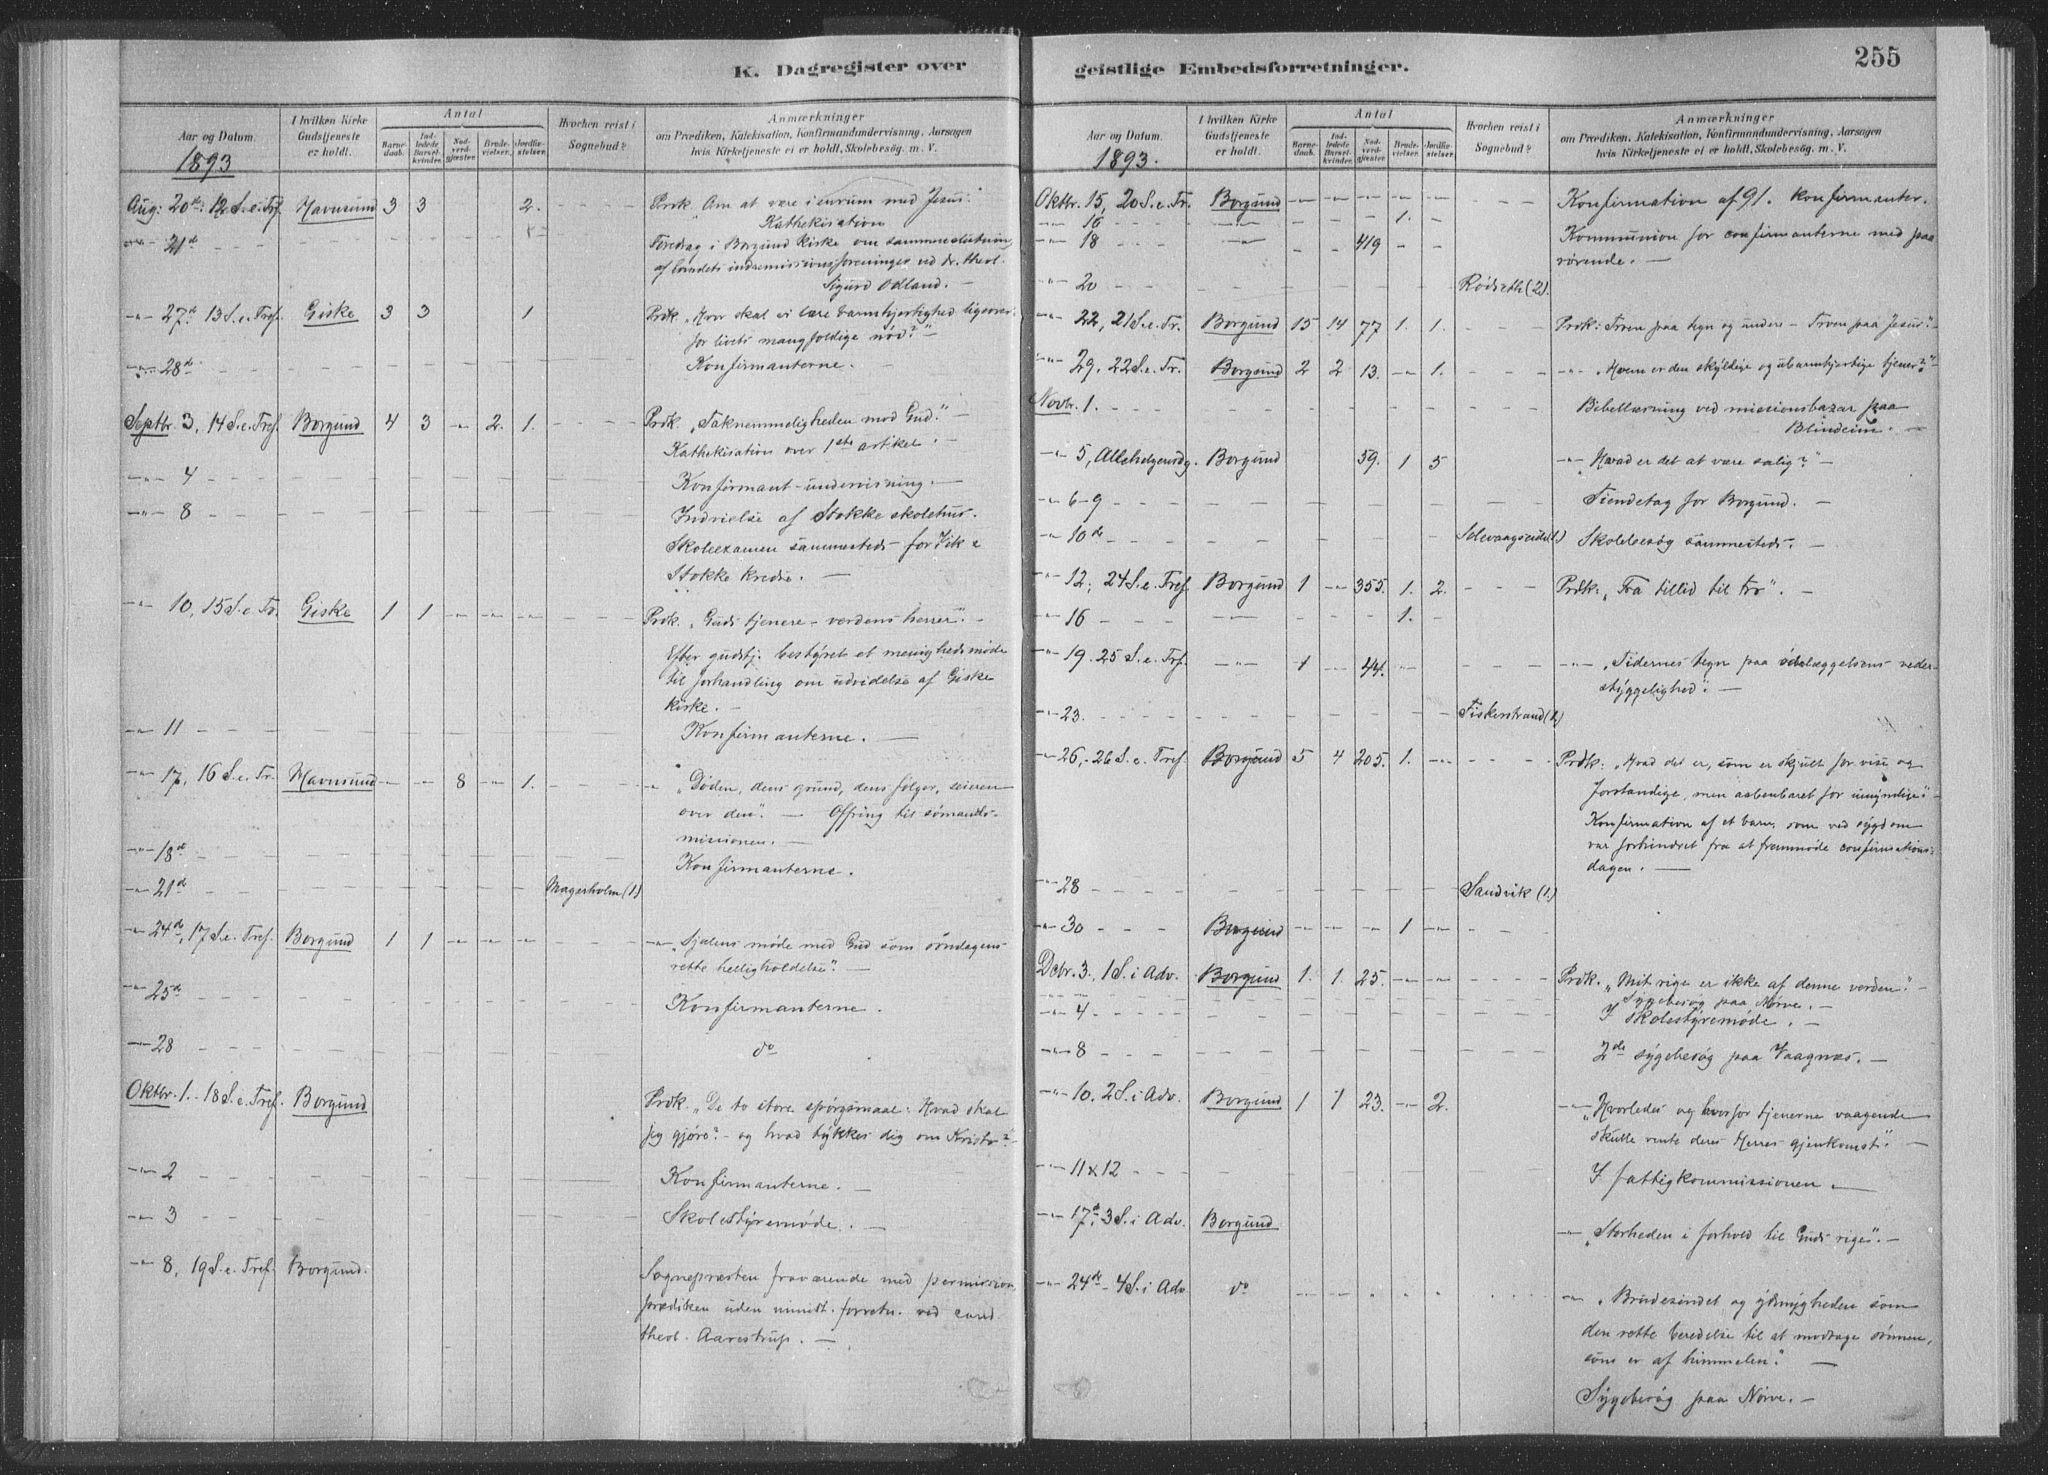 K. Dagregister over
Aar og Datum.
1893
I hvilken Kirke Gudstjeneste er holdt.
Antal
Barnedaab.
Indledede Barselkvinder.
Nadverdgjæster
Brudevielser.
Jordfæstelser.
Hvorhen reist i Sognebud?
Anmærkninger
om Prædiken, Katekisation, Konfirmandundervisning, Aarsagen
hvis Kirketjeneste ei er holdt, Skolebesøg m. V.
Aug: 20de: 12 S. e. Tref. Havnsund 3 3 2. Prdk. "Om at være i eurum med Jesus."
Kathekisation
-"- 21de Foredrag i Borgund kirke om sammenslutning
af landets indremissionsforeninger ved dr. theol.
Sigurd Odland. -
-"- 27de 13 S. e. Tref. Giske 3 3 1 Prdk. "Hvor skal vi lære barmhjertighed ligeover-
for livets mangfoldige nød?" -
-"- 28de Konfirmanterne. -
Septbr. 3, 14 S. e. Tref. Borgund 4 3 -"- 2. 1. Prdk. "Taknemmeligheden mod Gud." -
Kathekisation over 1ste artikel. -
-"- 4 Konfirmant-undervisning. -
-"- 8 Indvielse af Stokke skolehus.
Skoleexamen sammesteds for Vik &
Stokke kredse. -
-"- 10, 15 S. e. Tr. Giske 1 1 Prdk. "Guds tjenere - verdens herrer". -
Efter gudstj. bestyret et menighedsmøde
til forhandling om udvidelse af Giske
kirke. -
-"- 11 Konfirmanterne. -
-"- 17, 16 S. e. Tr. Havnsund 8 1. -"- "Døden, dens grund, dens følger, seieren
over den". - Offring til sømands-
missionen. -
-"- 18de Konfirmanterne.
-"- 21de Magerholm (1.)
-"- 24de, 17 S. e. Tref. Borgund 1 1 -"- "Sjælens møde med Gud som søndagens
rette helligholdelse". -
-"- 25de Konfirmanterne.
-"- 28 do
Oktbr. 1. 18 S. e. Tref. Borgund Prdk. "De to store spørgsmaal: Hvad skal
jeg gjøre? - og hvad tykkes dig om Kristo"? -
-"- 2 Konfirmanterne. -
-"- 3 Skolestyremøde. -
-"- 8, 19 S. e. Tref. Borgund. Sognepræsten fraværende med permission,
prædiken uden minist. forretn. ved cand.
theol. Aarestrup. -
geistlige Embedsforretninger.
255
Aar og Datum.
1893.
I hvilken Kirke Gudstjeneste er holdt.
Antal
Barnedaab.
Indledede Barselkvinder.
Nadverdgjæster
Brudevielser.
Jordfæstelser.
Hvorhen reist i Sognebud?
Anmærkninger
om Prædiken, Katekisation, Konfirmandundervisning, Aarsagen
hvis Kirketjeneste ei er holdt, Skolebesøg m. V.
Oktbr. 15, 20 S. e. Tr. Borgund Konfirmation af 91. konfirmanter.
-"- 16 -"- 1.
-"- 18 -"- 419 Kommunion for confirmanterne med paa
rørende. -
-"- 20 Rødseth (2).
-"- 22, 21 S. e. Tr. Borgund 15 14 77 1. 1. Prdk: "Troen paa tegn og undere - Troen paa Jesus". -
-"- 29, 22 S. e. Tr. Borgund 2 2 13. -"- 1. -"- "Hvem er den skyldige og ubarmhjertige tjener?" -
Novbr. 1. Bibellæsning ved missionsbazar paa
Blindeim. -
-"- 5, Allehelgensdg. Borgund 59. 1 5 -"- "Hvad er det at være salig?" -
-"- 6-9 Tiendetag for Borgund. -
-"- 10de Solevaagseidet (1.) Skolebesøg sammesteds. -
-"- 12, 24 S. e. Tref. Borgund 1 -"- 355. 1. 2. Prdk: "Fra tillid til tro". -
-"- 16 -"- 1.
-"- 19. 25 S. e. Trf. -"- 1 44. -"- -"- "Tidernes tegn paa ødelæggelsens veder-
styggelighed". -
-"- 23. Fiskerstrand (1.)
-"- 26, - 26 S. e. Tref. Borgund 5 4 205. 1. Prdk: "Hvad det er, som er skjult for vise og
forstandige, men aabenbaret for umyndige". -
Konfirmation af et barn, som ved sygdom
var forhindret fra at fremmøde confirmations-
dagen. -
-"- 28 Sandvik (1.)
-"- 30 Borgund 1
Dcbr. 3, 1 S. i Adv. Borgund 1. 1. 25. Prdk. "Mit rige er ikke af denne verden". -
Sygebesøg paa Nørve. -
-"- 4 I skolestyremøde. -
-"- 8 2de sygebesøg paa Vaagnæs. -
-"- 10, 2 S. i Adv. Borgund 1 1 23. -"- 2. -"- "Hvorledes og hvorfor tjenerne vaagende
skulle vente deres Herres gjenkomst". -
-"- 11 & 12 I fattigkommissionen. -
-"- 17de 3 S. i Adv. Borgund -"- "Storheden i forhold til Guds rige". -
-"- 24de - 4 S. i Adv. do -"- "Brudesindet og ydmygheden som
den rette beredelse til at modtage sønnen,
som er af himmelen". -
Sygebesøg paa Nørve. -